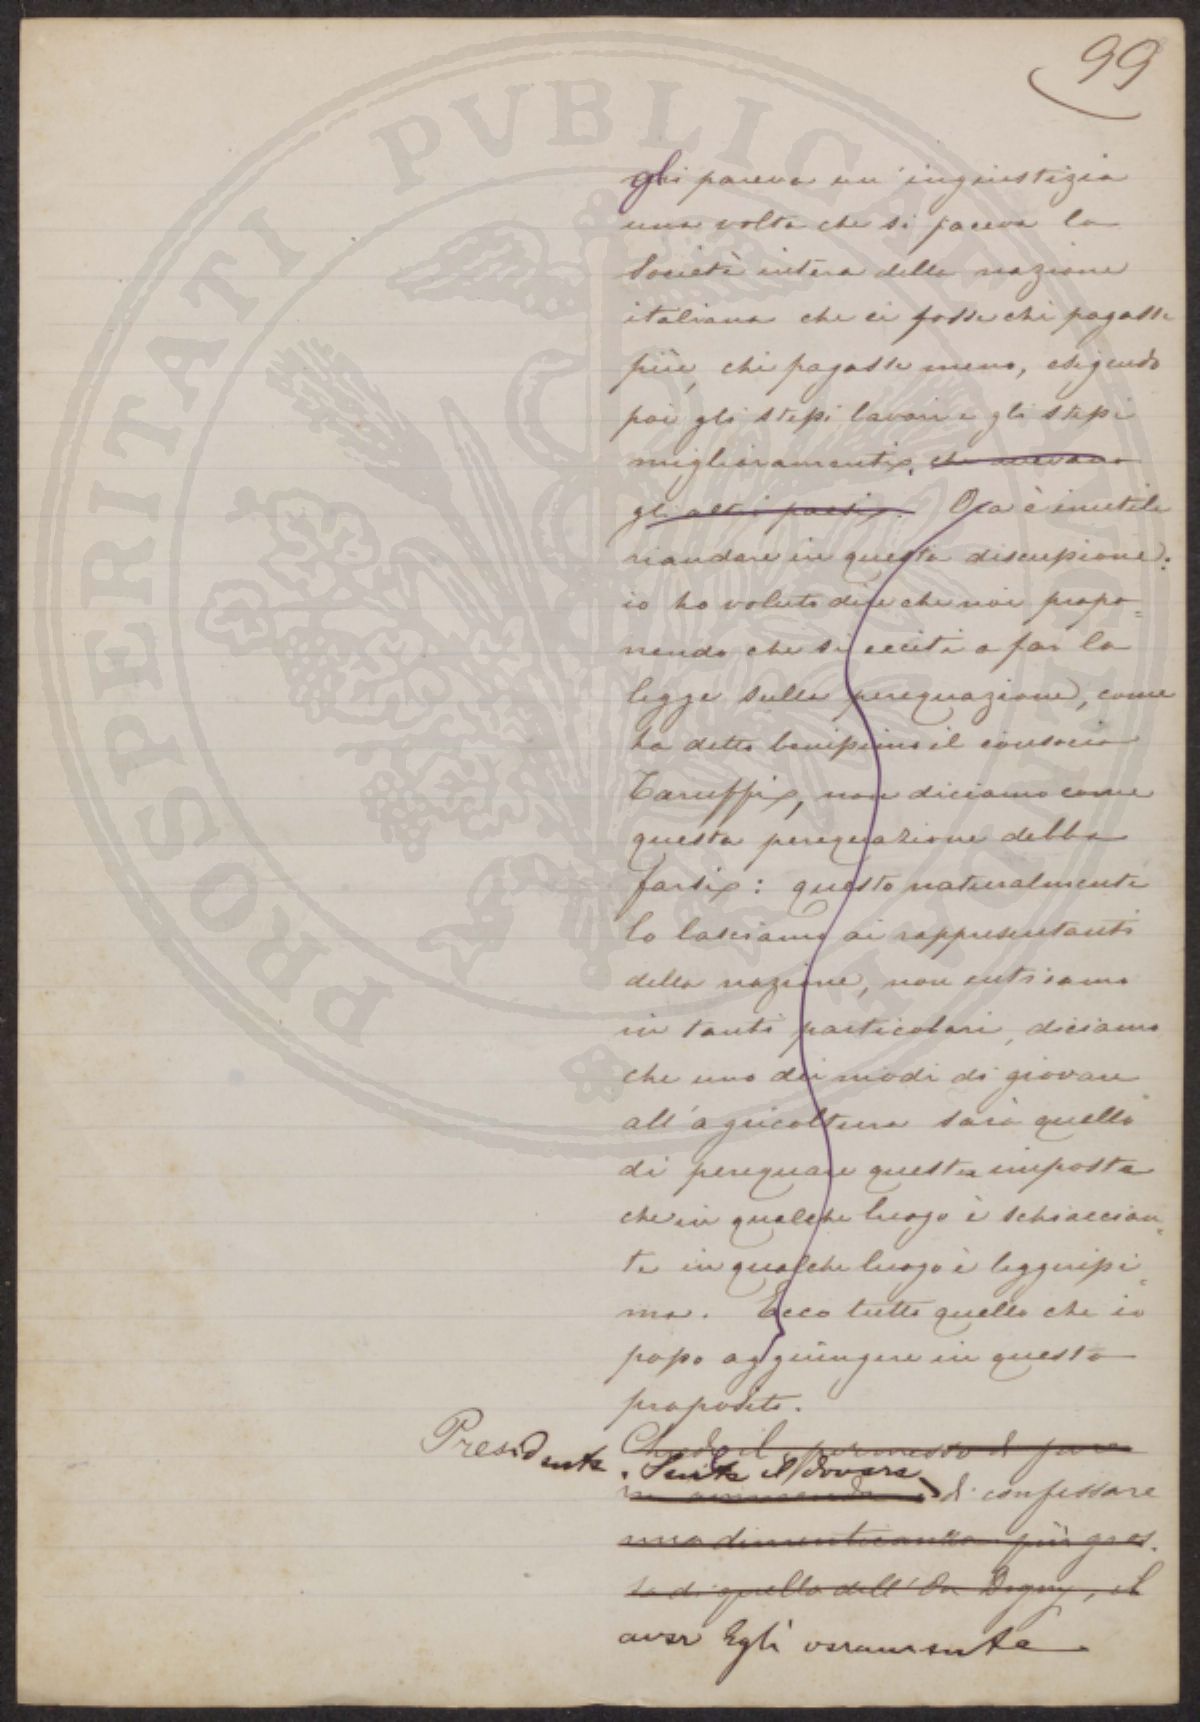 99
gli pareva un' ingiustizia
una volta che si faceva la
Società intera della nazione
italiana che ci fosse chi pagasse
più, chi pagasse meno, esigendo
poi gli stessi lavori e gli stessi
miglioramenti, che avevano
gli altri paesi. Ora è inutile
riandare in questa discussione:
io ho voluto dire che noi propo=
nendo che si ecciti a far la
legge sulla perequazione, come
ha detto benissimo il consocio
Taruffi, non diciamo come
questa perequazione debba
farsi: questo naturalmente
lo lasciamo ai rappresentanti
della nazione, non entriamo
in tanti particolari, diciamo
che uno dei modi di giovare
all'agricoltura sarà quello
di perequare questa imposta
che in qualche luogo è schiaccian=
te in qualche luogo è leggerissi=
ma. Ecco tutto quello che io
posso aggiungere in questo
proposito.
Presidente. Chiedo il permesso di fare
Sente il dovere
di confessare
una dimenticanza più gros-
sa di quella dell'On Degny, il
aver Egli veramente
PROSPERITATI PUBLICAE